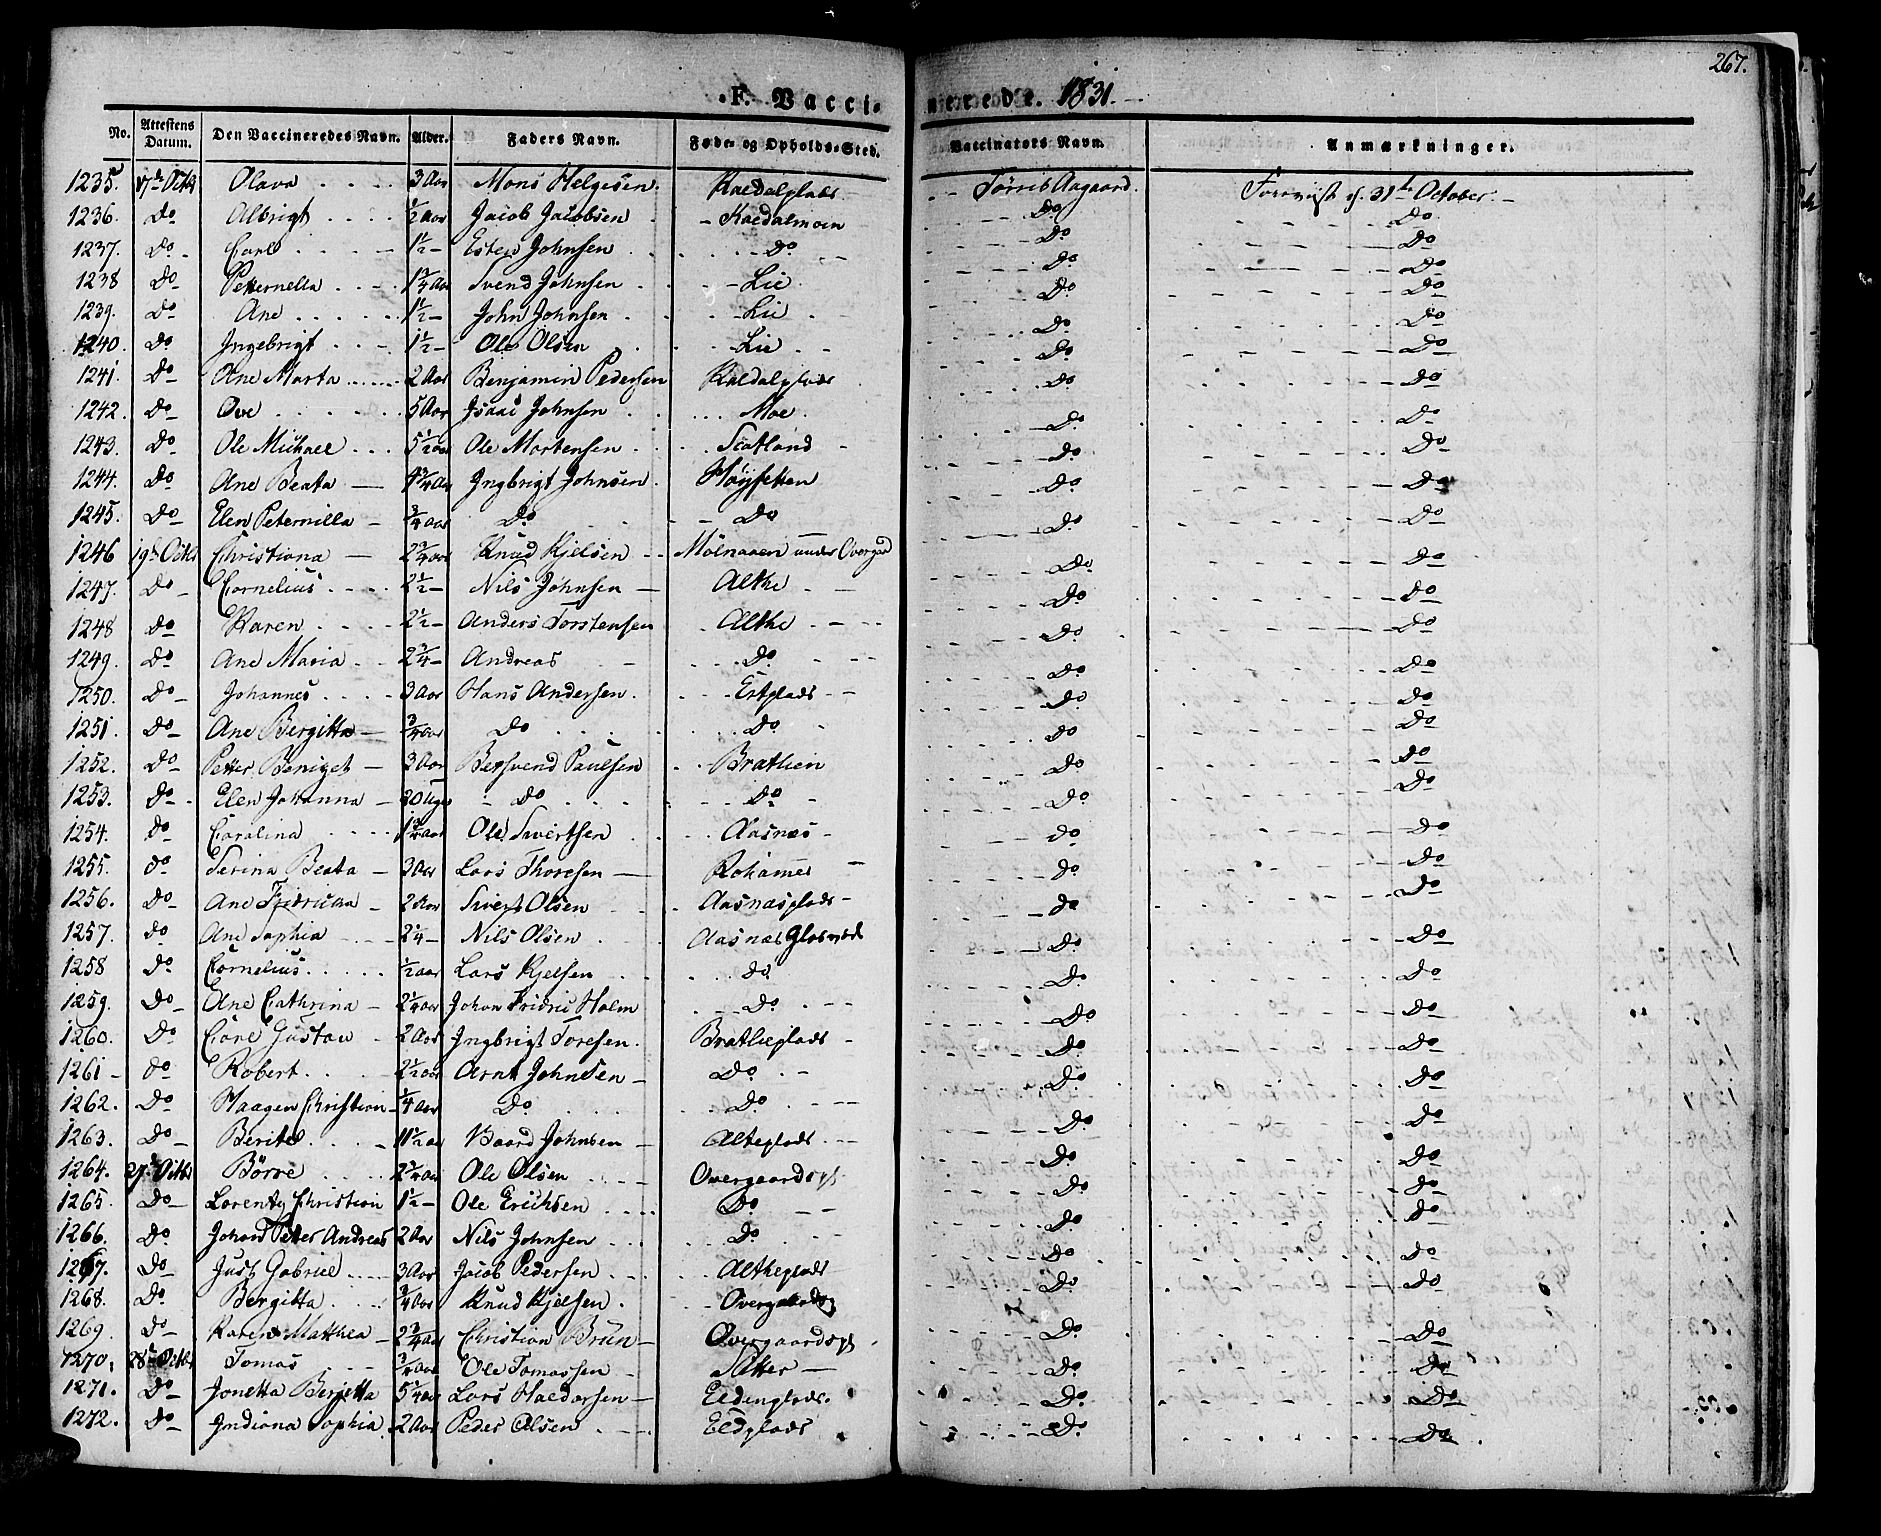 267.
F. Vaccinerede. 1831.
No. Attestens Datum. Den Vaccineredes Navn. Alder. Faders Navn. Føde- og Opholds-Sted. Vaccinators Navn. Anmærkninger.
1235. 17de Octbr Olava 3 Aar Mons Helgesen. Kaldalplads Aagaard. 31te October.
1236. Do Albrigt ½ Aar Jacob Jacobsen Kaldalmoen Do Do
1237. Do Carl 1½ Johnsen Do Do Do
1238 Do Petternella 1¾ Aar Svend Johnsen Lie Do Do
1239. Do Ane 1½ John Johnsen Lie Do Do
1240. Do Ingebrigt 1½ Ole Olsen Lie Do Do
1241. Do Ane Marta 2 Aar Benjamin Pedersen Kaldalplads Do Do
1242. Do Ove 5 Aar Isaac Johnsen Moe. Do Do
1243. Do Ole Michael 5½ Aar Ole Mortensen Scotland Do Do
1244. Do Ane Beata 4¾ Aar Ingbrigt Johnsen. Høysetten Do Do
1245. Do Elen Peternilla ¾ Aar Do Do Do Do
1246 19de Octbr Christiana 2¾ Aar Knud Kjelsen under Overgrd Do Do
1247. Do Cornelius 2½ Nils Johnsen Alkhe Do Do
1248 Do Karen 2½ Anders Torstensen Alkhe Do Do
1249. Do Ane Maria 2¾ Andreas Do Do Do
1250. Do Johannes 3 Aar Hans Andersen. Estplads Do Do
1251. Do Ane Bergitta ¾ Aar Do Do Do Do
1252. Do Petter Beniget 3 Aar Bersvend Paulsen Brathlien Do Do
1253. Do Elen Johanna 20 Uger Do Do Do Do
1254. Do Carolina 1¾ Aar Ole Sivertsen Aasnæs Do Do
1255. Do Serina Beata 3 Aar Lars Thoresen Rohamer Do Do
1256. Do Ane Fridricka 2 Aar Sivert Olsen Aasnæsplads Do Do
1257. Do Ane Sophia 2¼ Nils Olsen Aasnæs Do Do
1258 Do Cornelius ½ Aar Lars Kjelsen do Do Do
1259. Do Ane Cathrina 2¼ Aar Johan Fridric Holm Do Do Do
1260. Do Carl Gustav 2 Aar Ingbrigt Toresen. Bratlieplads Do Do
1261 Do Robert 2½ Aar Arnt Johnsen Do Do Do
1262. Do Haagen Christian ¼ Aar Do Do Do Do
1263. Do Beritel 11½ Aar Baard Johnsen Alteplads Do Do
1264. 27de Octbr Börre 2¼ Aar Ole Olsen Overgaardspl Do Do
1265. Do Lorentz Christian 1½ Ole Erichsen Do Do Do
1266. Do Johan Peter Andreas 2 Aar Nils Johnsen Do Do Do
1267. Do Just Gabriel 3 Aar Jacob Pedersen Altheplads Do Do
1268. Do Bergitta ¾ Aar Knud Kjelsen. Overgaardspl Do Do
1269. Do Karen Matthea 2¾ Aar Christian Brün Overgaardspl Do Do
1270. 28de Octbr Tomas ¾ Aar Ole Tomassen Do Do
1271. Do Jonetta Berjetta 5¼ Aar Lars Haldorsen Eldenplads Do Do
1272. Do Indiana Sophia 2 Aar Peder Olsen Eldplads Do Do